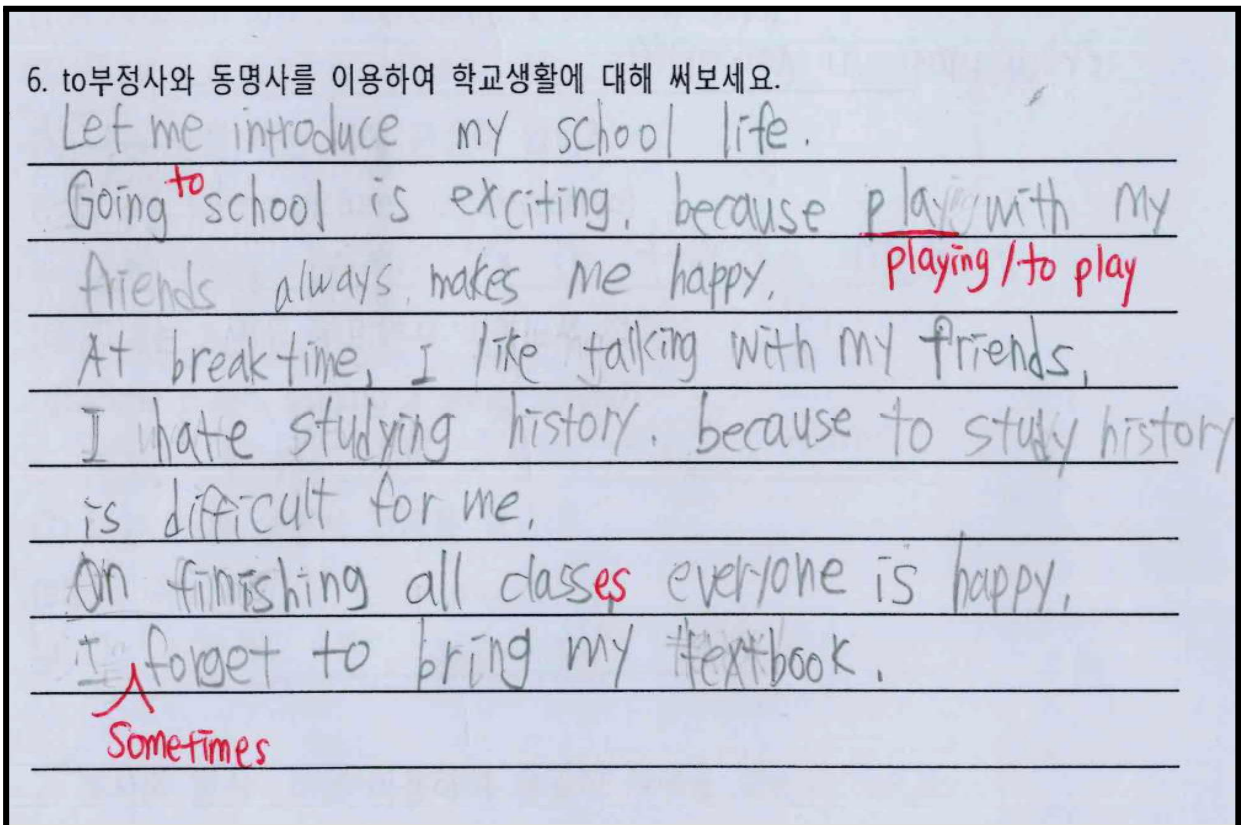 6. to부정사와 동명사를 이용하여 학교생활에 대해 써보세요.
Let me introduce my school life.
Going to school is exciting. because play with my
playing / to play
friends always makes me happy.
At break time, I like talking with my friends.
I hate studying history. because to study history
is difficult for me.
On finishing all classes everyone is happy.
I forget to bring my textbook.
Sometimes